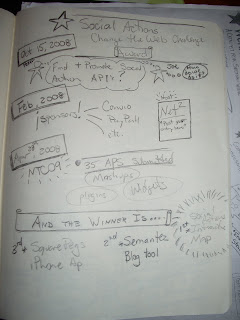 Social Actions
Change the Web Challenge
Oct 15, 2008
Find + Promote Social
Action APPs?
Feb, 2008
Sponsors!
Convio
PayPall
etc.
Net²
Apr 28, 2008
NTC09
35 APS Submitted
Mashups
plugins
Widgets
AND THE WINNER IS....
3rd
Squarepegs
iPhone Ap
2nd
Semantez
Blog tool
1st
Map